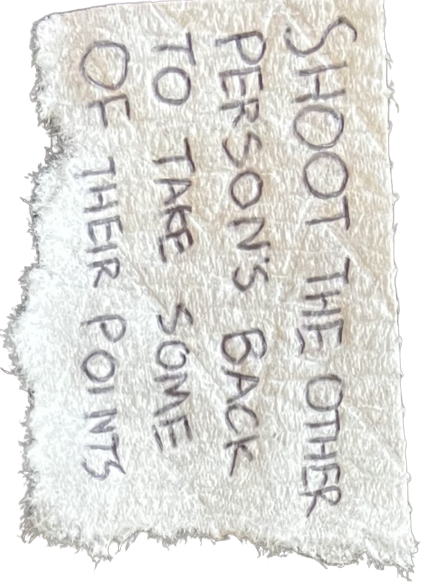 SHOOT THE OTHER
PERSON'S BACK
TO TAKE SOME
OF THEIR POINTS